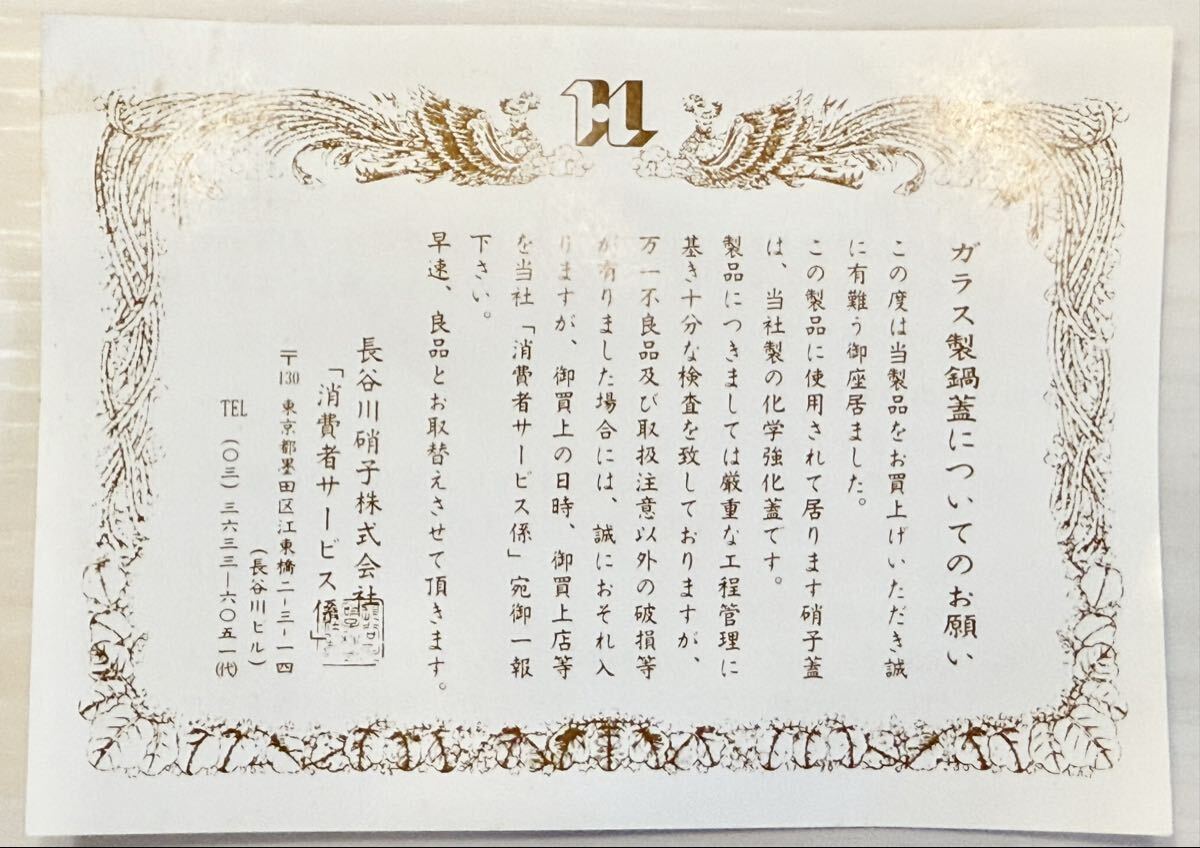 H
ガラス製鍋蓋についてのお願い
この度は当製品をお買上げいただき誠
に有難う御座居ました。
この製品に使用されて居ります硝子蓋
は、当社製の化学強化蓋です。
製品につきましては厳重な工程管理に
基き十分な検査を致しておりますが、
万一不良品及び取扱注意以外の破損等
が有りました場合には、誠におそれ入
りますが、御買上の日時、御買上店等
を当社「消費者サービス係」宛御一報
下さい。
早速、良品とお取替えさせて頂きます。
長谷川硝子株式会社
「消費者サービス係」
〒130 東京都墨田区江東橋二ー三ー一四
(長谷川ビル)
TEL (〇三)三六三三ー六〇五一(代)